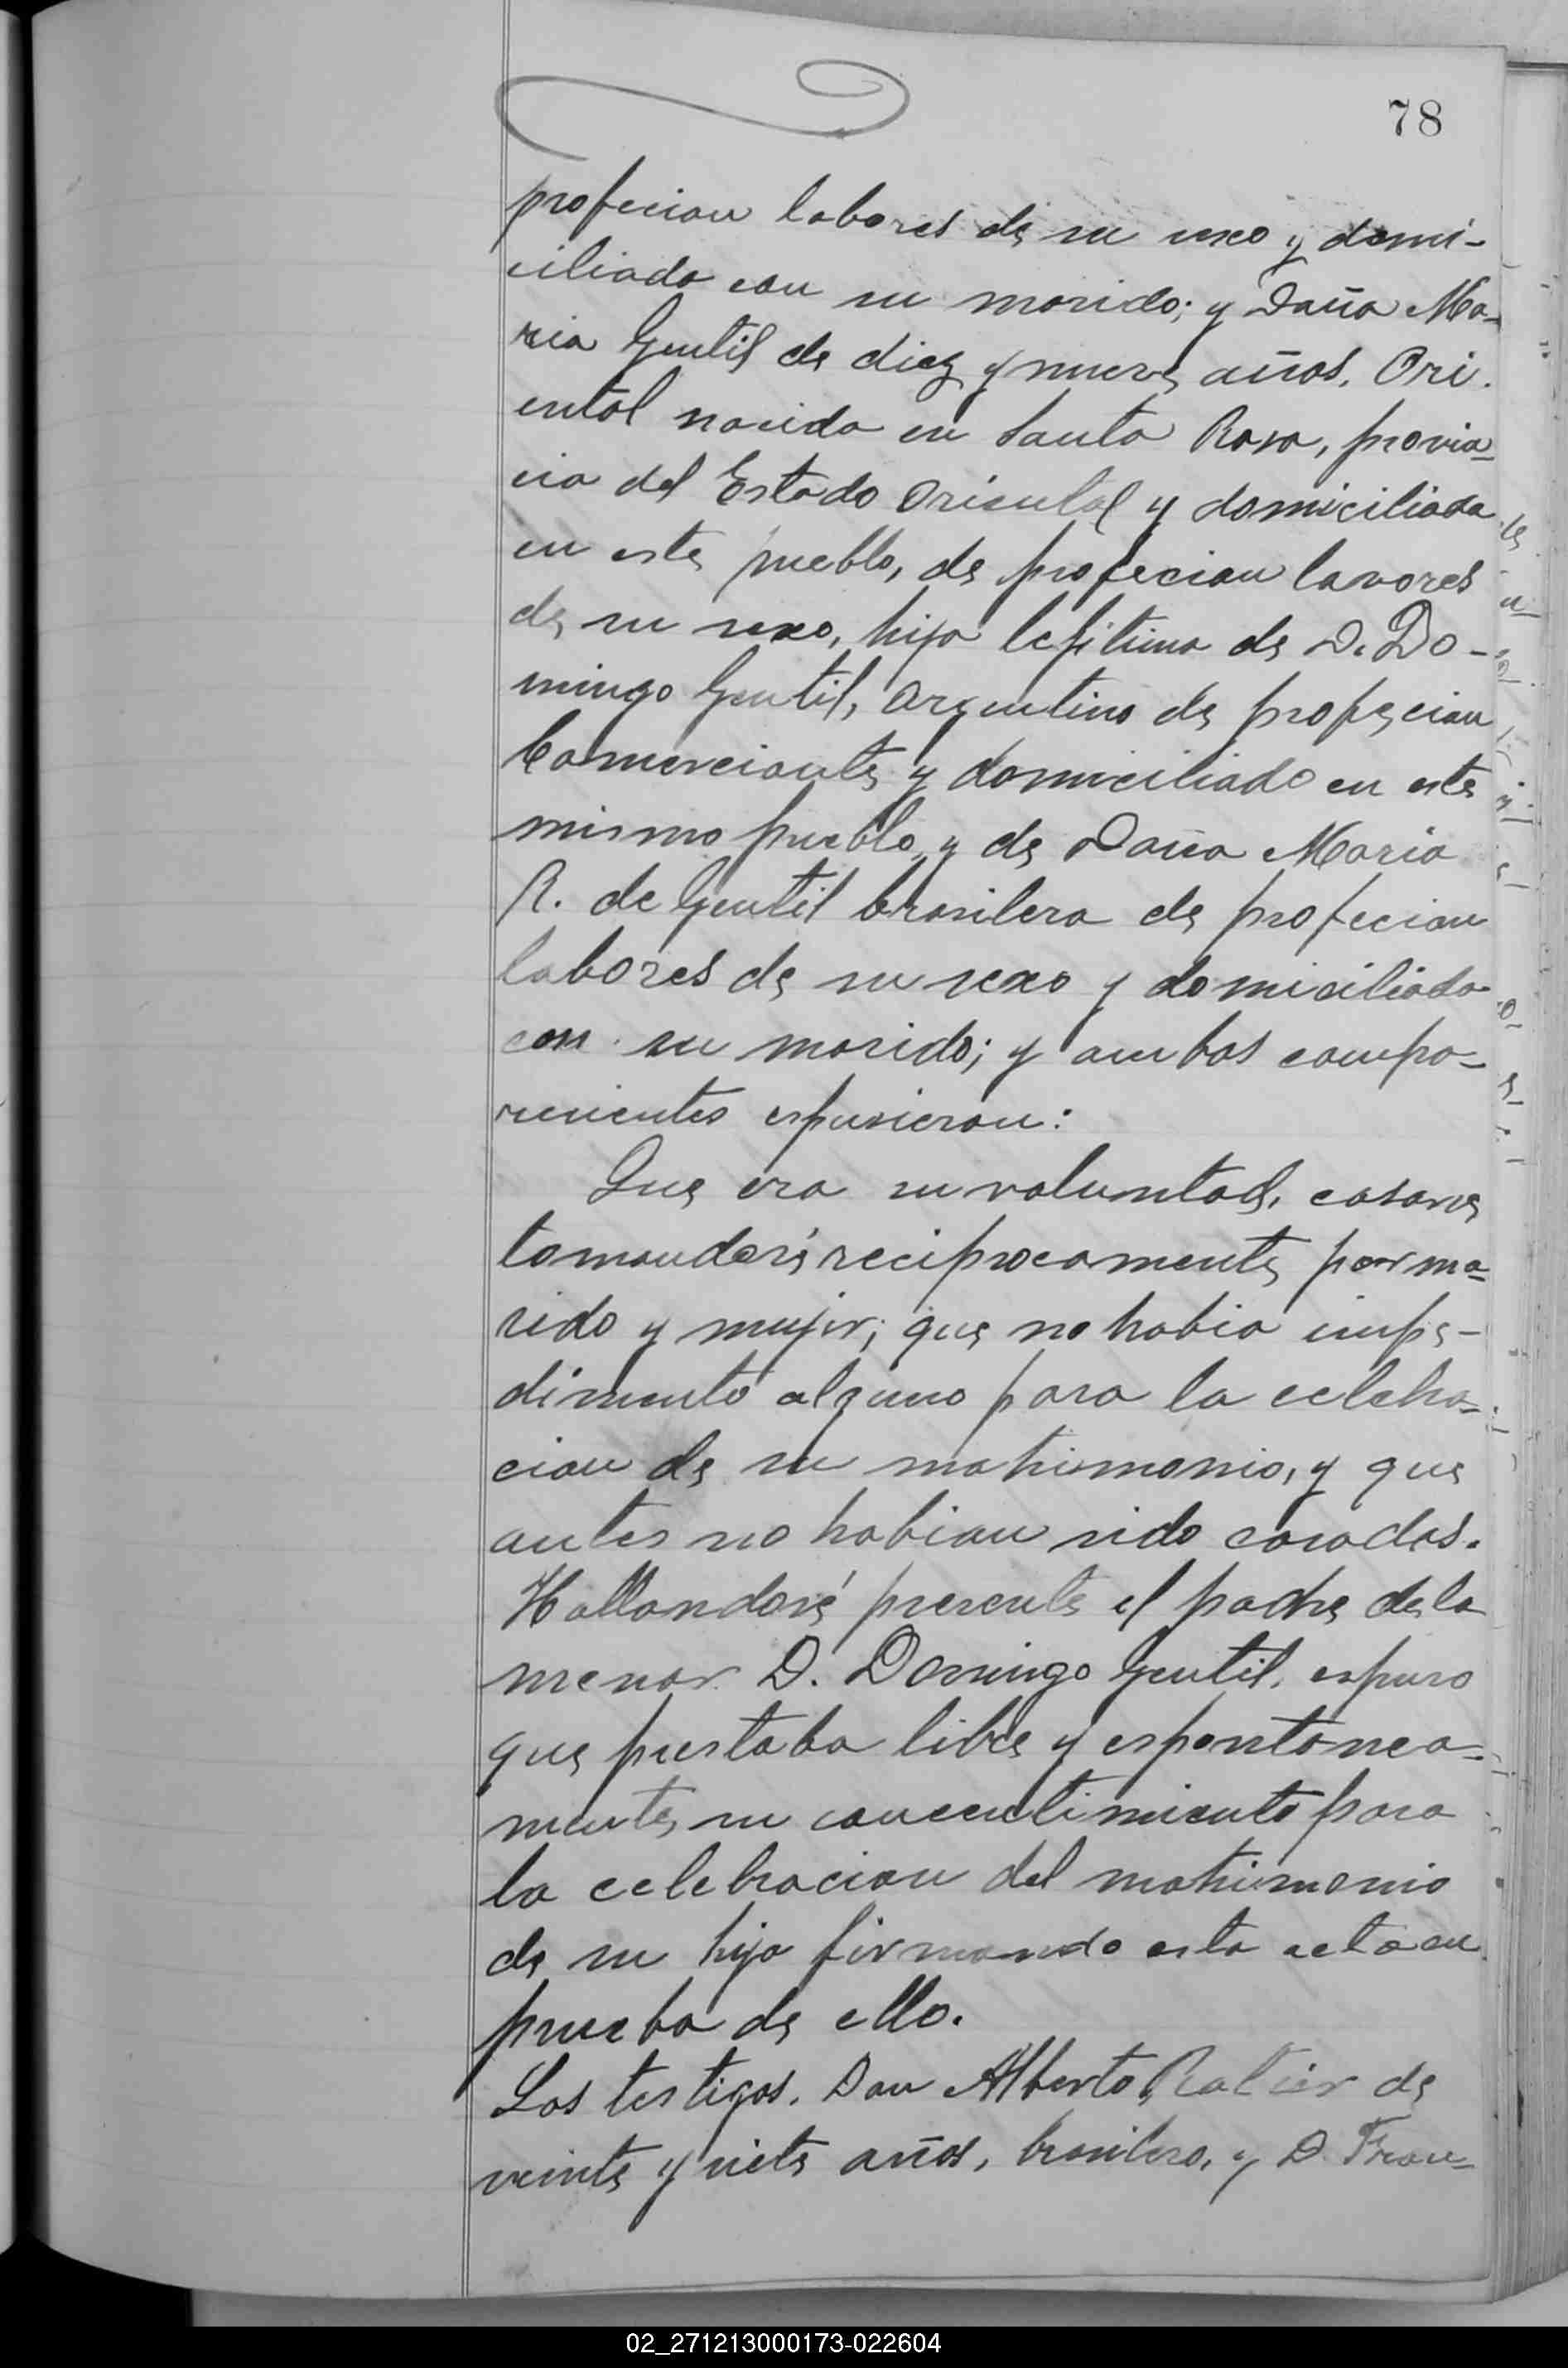 78
profecion labores de su sexo y domi-
ciliada con su marido; y Doña Ma-
ria Gentil de diez y nueve años, Ori.
ental nacida en Santa Rosa, provin-
cia del Estado Oriental y domiciliada
en este pueblo, de profecion lavores
de su sexo, hija lefitima de D. Do-
mingo Gentil, Argentino de profecion
Comerciante y domiciliado en este
mismo pueblo, y de Doña Maria
R. de Gentil brasilera de profecion
labores de su sexo y domiciliada
con su marido; y ambos compa-
recientes espusieron:
Que era su voluntad, casarse
tomandosé reciprocamente por ma-
rido y mujer; que no habia impe-
dimento alguno para la celebra-
cion de su matrimonio, y que
antes no habian sido casados.
Hallandosé presente el padre de la
menor D. Domingo Gentil, espuso
que prestaba libre y espontanea-
mente su concentimiento para
la celebracion del matrimonio
de su hija firmando esta acta en
prueba de ello.
Los testigos. Don Alberto Ratier de
veinte y siete años, brasilero, y D. Fran-
02_271213000173-022604